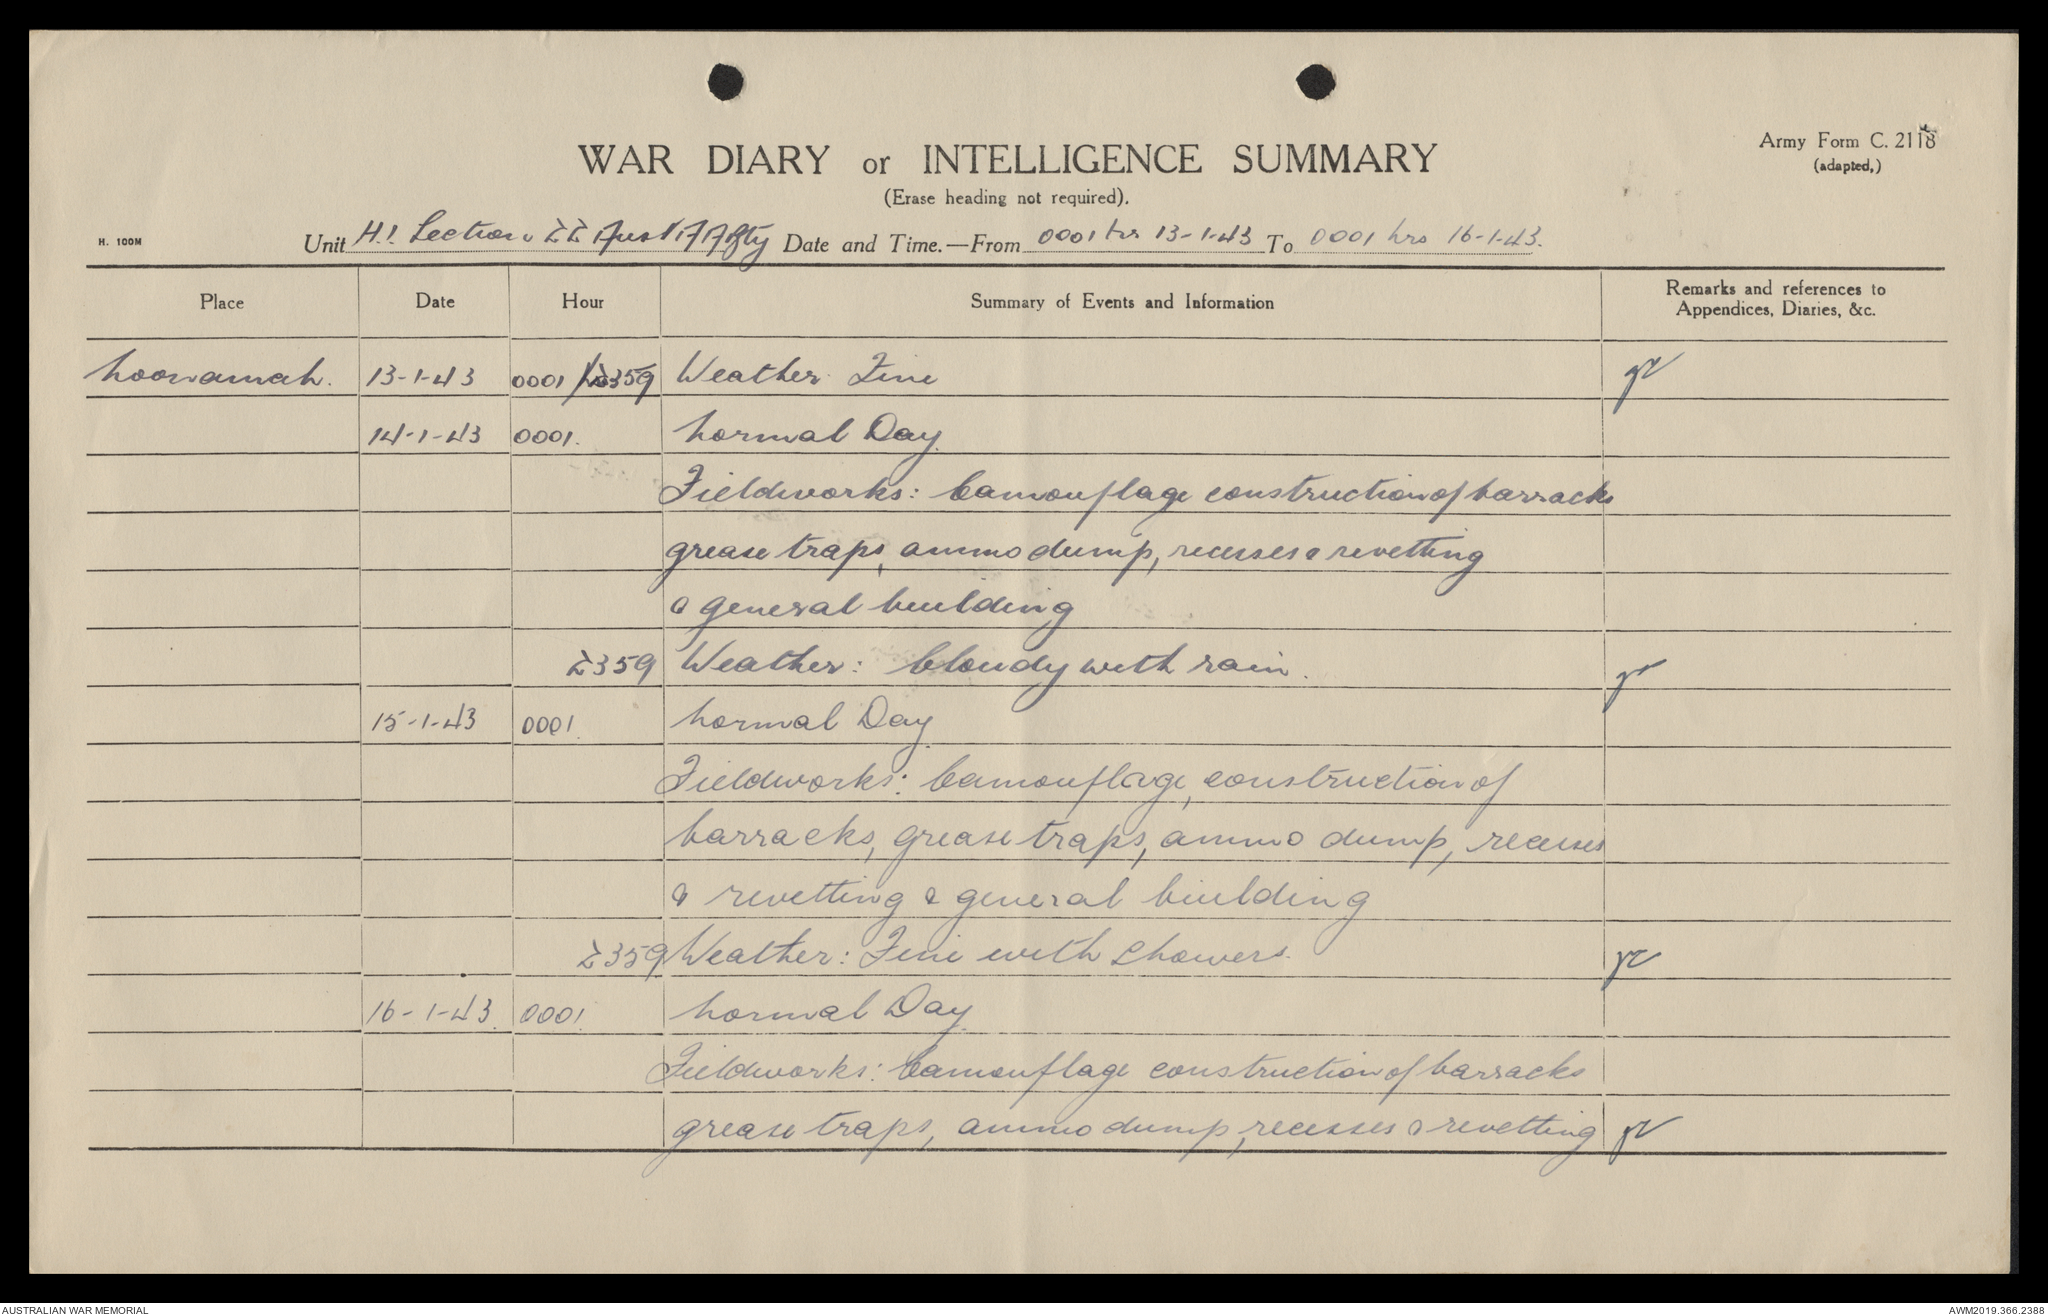 Army Form C. 2118
(adapted.)
WAR DIARY or INTELLIGENCE SUMMARY
(Erase heading not required).
H. 100M
Unit H.1. Section 22 Aust A A Bty Date and Time.—From 0001 hrs 13-1-43 To 0001 hrs 16-1-43.
Place Date Hour Summary of Events and Information Remarks and references to
Appendices, Diaries, &c.
Noonamah. 13-1-43 0001/2359 Weather Fine
14-1-43 0001. Normal Day.
Fieldworks: Camouflage construction of barracks
grease traps, ammo dump, recesses & revetting
& general building
2359 Weather: Cloudy with rain.
15-1-43 0001. Normal Day.
Fieldworks: Camouflage, construction of
barracks, grease traps, ammo dump, recesses
& revetting & general building
2359 Weather: Fine with showers.
16-1-43 0001 Normal Day.
Fieldworks: Camouflage construction of barracks
grease traps, ammo dump, recesses & revetting
AUSTRALIAN WAR MEMORIAL AWM2019.366.2388